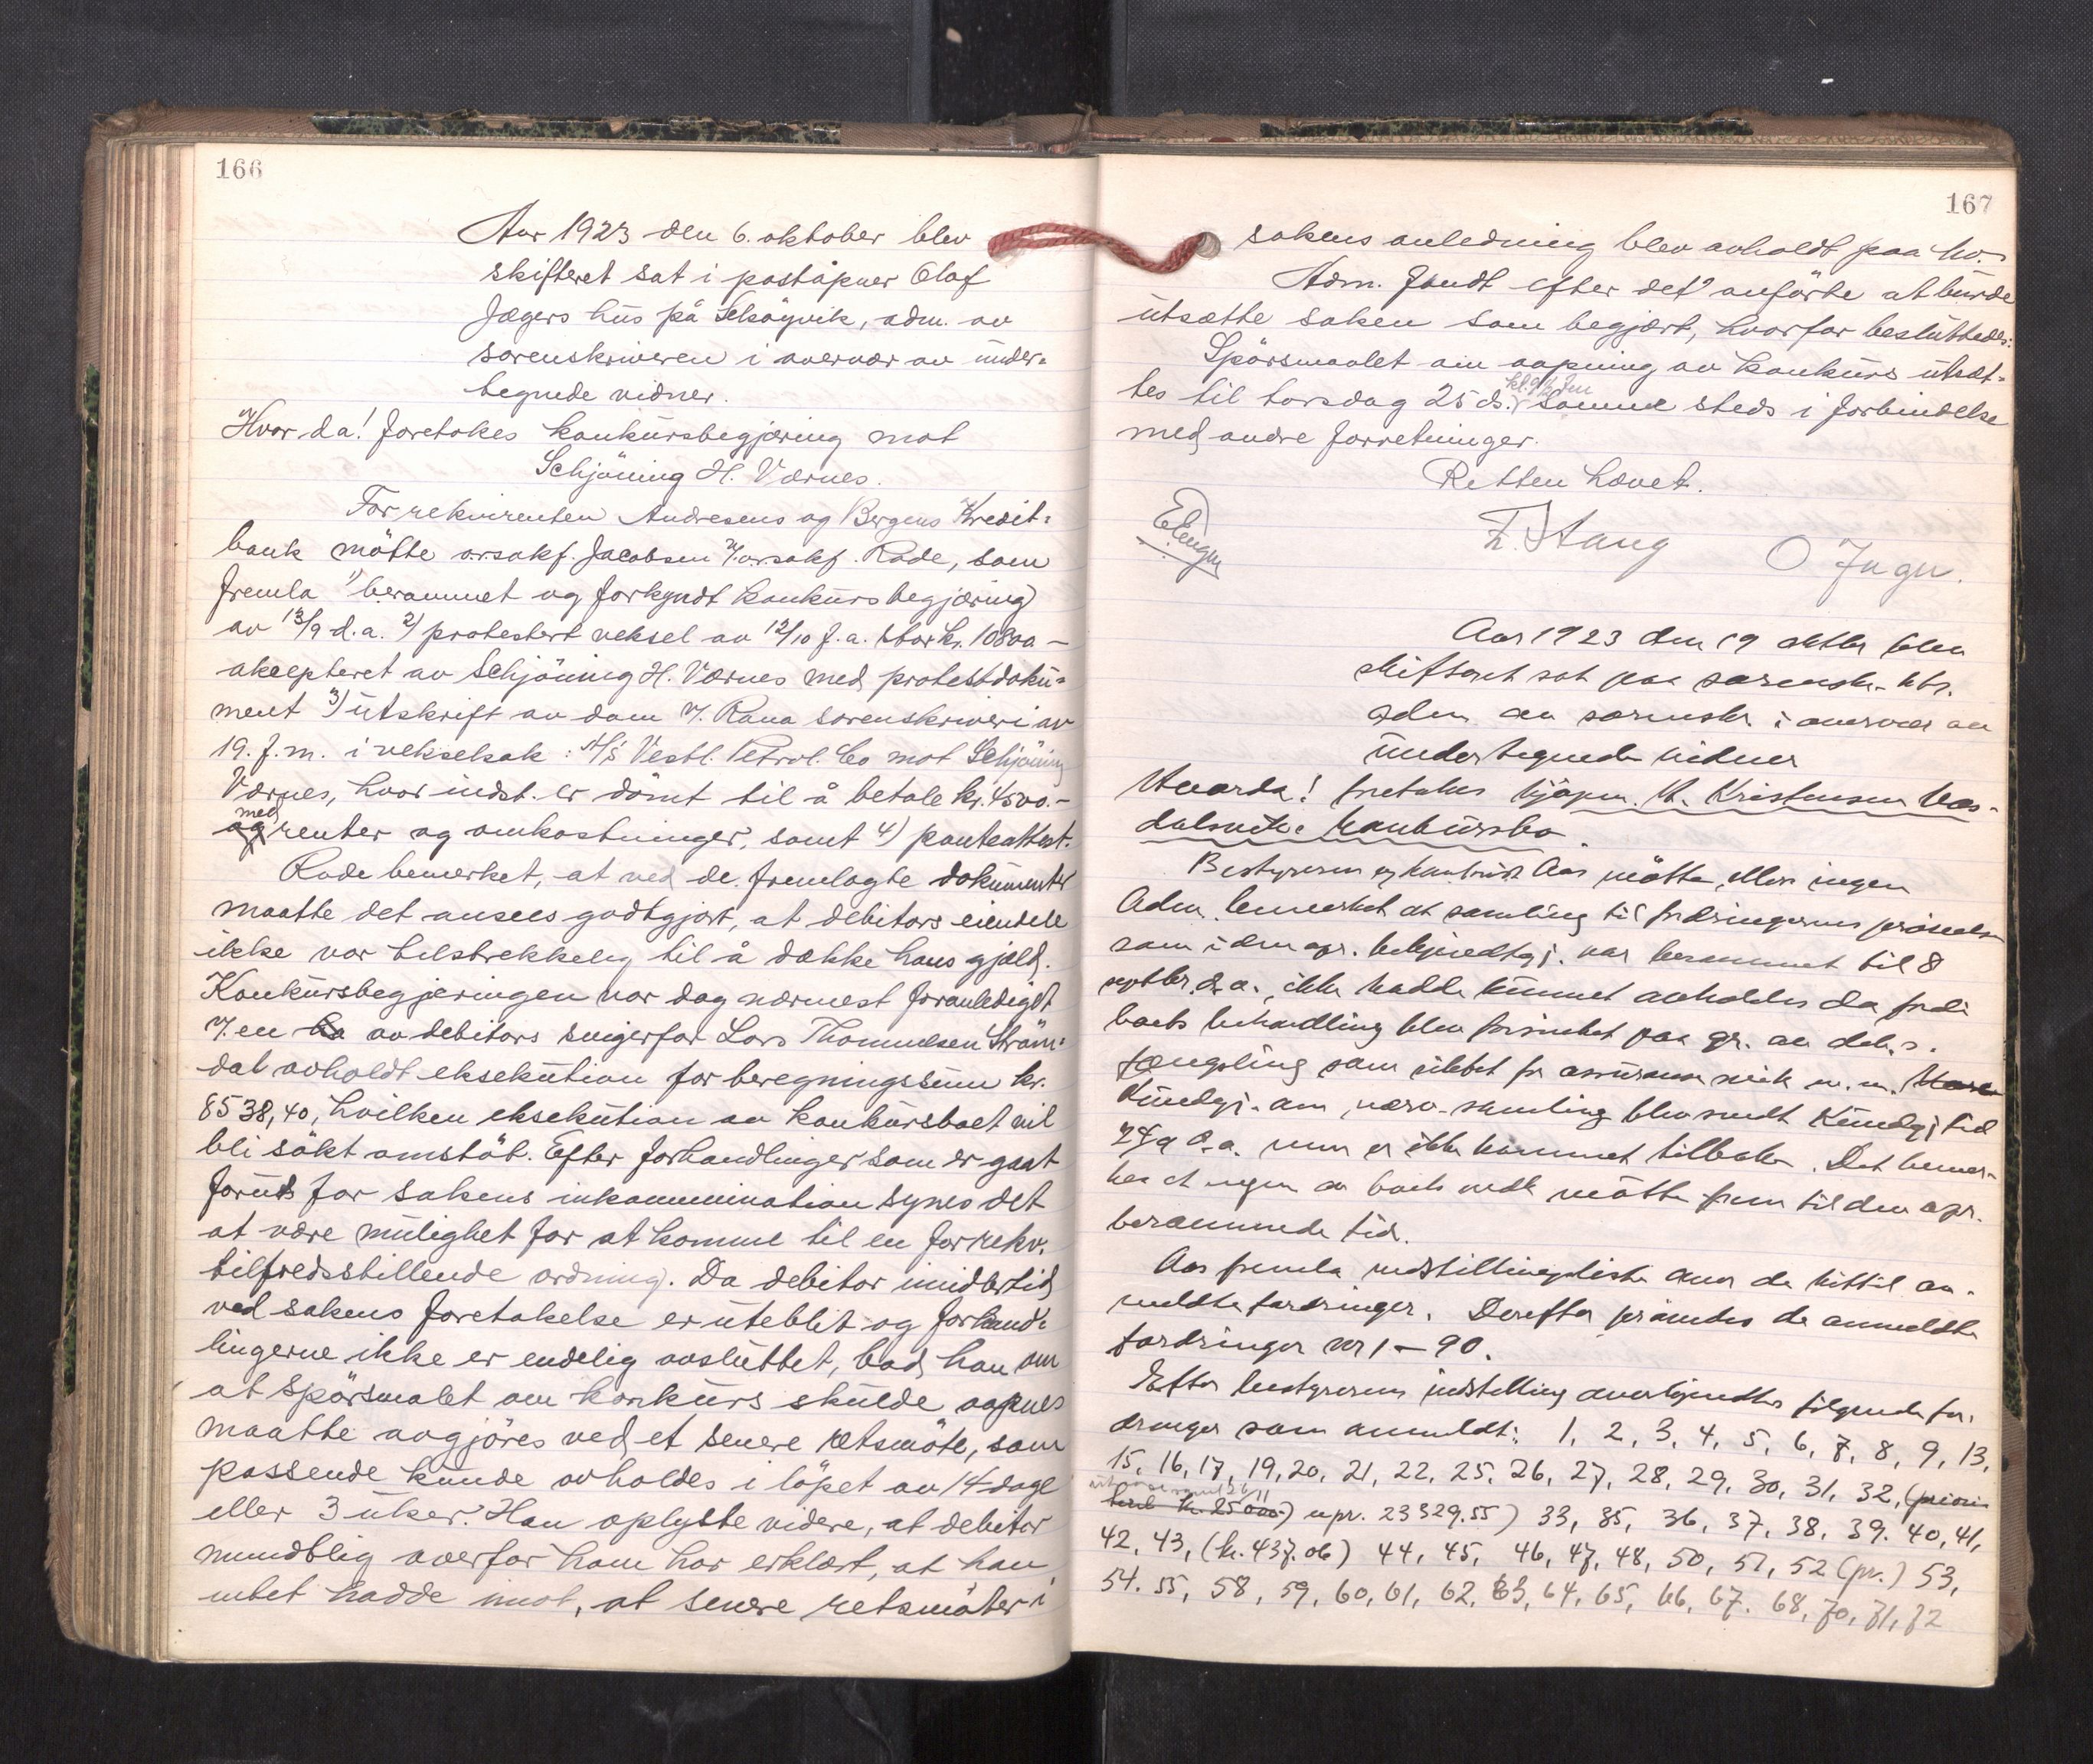 166
Aar 1923 den 6. oktober blev
skifteret sat i poståpner Olaf
Jægers hus på , adm. av
sorenskriveren i overvær av under-
tegnede vidner.
Hvor da! foretokes konkursbegjæring mot
Schjöning H. Værnes.
For rekvirenten Andresens og Bergens Kredit-
bank mötte o.r.sakf. Jacobsen v/o.r.sakf. Rode, som
fremla 1) berammet og forkyndt konkursbegjæring
av 13/9 d.a. 2) protestert veksel av 12/10 f.a. stor kr. 10800 -
akcepteret av Schjöning H. Værnes med protestdoku-
ment 3) utskrift av dom v. Rana sorenskriveri av
19. f.m. i vekselsak: A/S Vestl. Petrol. Co mot Schjöning
Værnes, hvor indst. er dömt til å betale kr. 4500.-
med
og renter og omkostninger, samt 4) panteattest.
Rode bemerket, at ved de fremlagte dokumenter
maatte det ansees godtgjort, at debitors eiendele
ikke var tilstrekkelig til å dække hans gjæld.
Konkursbegjæringen var dog nærmest foranlediget
v. en av debitors svigerfar Lars Thomassen Ström-
dal avholdt eksekution for beregningssum kr.
8538,40, hvilken eksekution av konkursboet vil
bli sökt omstöt. Efter forhandlinger som er gaat
foruts for sakens inkammination synes det
at være mulighet for at komme til en for rekv.
tilfredsstillende ordning. Da debitor imidlertid
ved sakens foretakelse er uteblit og forhand-
lingerne ikke er endelig avsluttet, bad han om
at spörsmalet om konkurs skulde aapnes
maatte avgjöres ved et senere retsmöte, som
passende kunde avholdes i löpet av 14 dage
eller 3 uker. Han oplyste videre, at debitor
mundtlig overfor ham har erklært, at han
intet hadde imot, at senere retsmöter i
167
sakens anledning blev avholdt paa Mo.
Adm. fandt efter det anförte at burde
utsætte saken som begjært, hvorfor besluttedes:
Spörsmaalet om aapning av konkurs utsæt-
kl. 9 1/2 fm
tes til torsdag 25 ds. samme steds i forbindelse
med andre forretninger.
Retten hævet.
Stang
O Jæger.
Aar 1923 den 19 oktbr blev
skifteret sat paa sorenskr. ktr.
adm. av sorenskr. i overvær av
undertegnede vidner
Hvorda! foretokes kjöpm. Kristensen
konkursbo.
Bestyreren Aas mötte, ellers ingen
Adm. bemerket at samling til fordringernes prövelse
som i den opr. bekjendtgj. var berammet til 8
septbr. d.a., ikke hadde kunnet avholdes da fordi
boets behandling blev forsinket paa gr. av deb.s
fængsling som siktet for assurancesvik m.m.
Kundgj. om nærv. samling blev sendt Kundgj.tid
d.a. men er ikke kommet tilbake. Det bemer-
kes at ingen av boets mötte frem til den opr.
berammede tid.
Aas fremla indstillingsliste over de hittil an-
meldte fordringer. Derefter prövedes de anmeldte
fordringer nr 1 - 90.
Efter bestyrerens indstilling godkjendtes fölgende for-
dringer som anmeldt: 1, 2, 3, 4, 5, 6, 7, 8, 9, 13,
15, 16, 17, 19, 20, 21, 22, 25, 26, 27, 28, 29, 30, 31, 32, (priori-
tert kr. 25000.) upr. 23329.55) 33, 35, 36, 37, 38, 39. 40, 41,
42, 43, (kr. 437.06) 44, 45, 46, 47, 48, 50, 51, 52 (pr.) 53,
54. 55, 58, 59, 60, 61, 62, 63, 64, 65, 66, 67. 68, 70, 71, 72